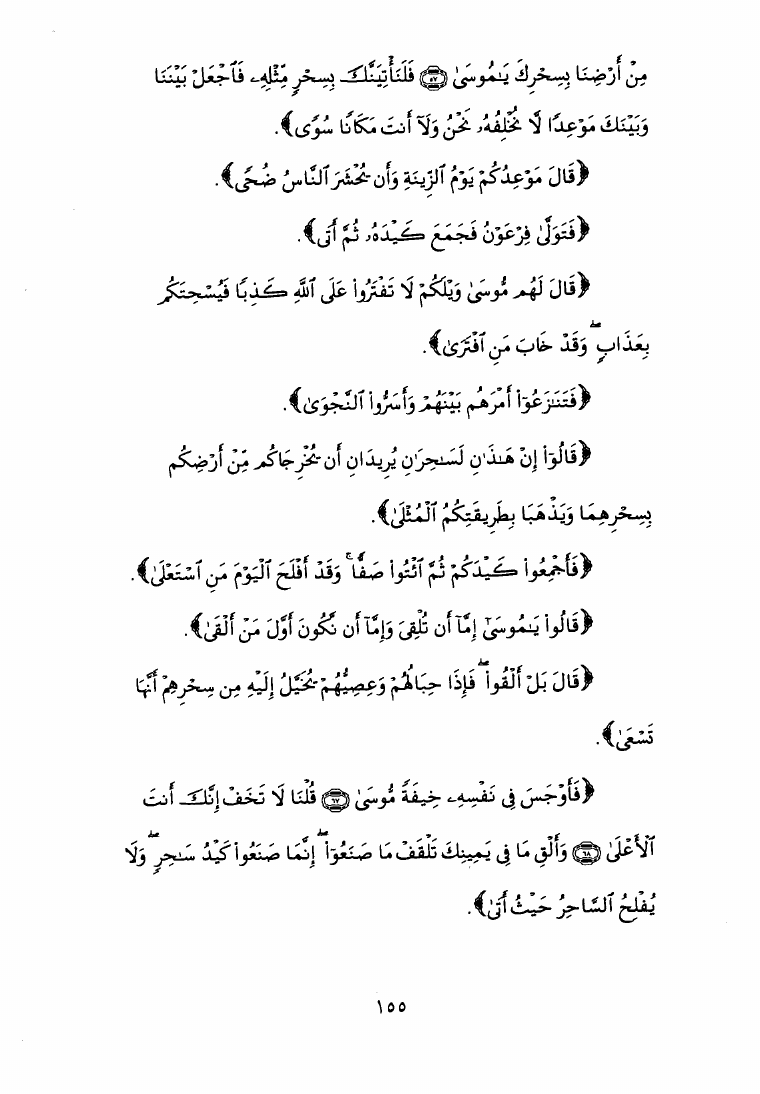 مِنْ أَرْضِنَا بِسِحْرِكَ يَٰمُوسَىٰ ٥٧ فَلَنَأْتِيَنَّكَ بِسِحْرٍ مِّثْلِهِۦ فَٱجْعَلْ بَيْنَنَا
وَبَيْنَكَ مَوْعِدًا لَّا نُخْلِفُهُۥ نَحْنُ وَلَآ أَنتَ مَكَانًا سُوًى﴾.
﴿قَالَ مَوْعِدُكُمْ يَوْمُ ٱلزِّينَةِ وَأَن يُحْشَرَ ٱلنَّاسُ ضُحًى﴾.
﴿فَتَوَلَّىٰ فِرْعَوْنُ فَجَمَعَ كَيْدَهُۥ ثُمَّ أَتَىٰ﴾.
﴿قَالَ لَهُم مُّوسَىٰ وَيْلَكُمْ لَا تَفْتَرُوا۟ عَلَى ٱللَّهِ كَذِبًا فَيُسْحِتَكُم
بِعَذَابٍ ۖ وَقَدْ خَابَ مَنِ ٱفْتَرَىٰ﴾.
﴿فَتَنَٰزَعُوٓا۟ أَمْرَهُم بَيْنَهُمْ وَأَسَرُّوا۟ ٱلنَّجْوَىٰ﴾.
﴿قَالُوٓا۟ إِنْ هَٰذَٰنِ لَسَٰحِرَٰنِ يُرِيدَانِ أَن يُخْرِجَاكُم مِّنْ أَرْضِكُم
بِسِحْرِهِمَا وَيَذْهَبَا بِطَرِيقَتِكُمُ ٱلْمُثْلَىٰ﴾.
﴿فَأَجْمِعُوا۟ كَيْدَكُمْ ثُمَّ ٱئْتُوا۟ صَفًّا ۚ وَقَدْ أَفْلَحَ ٱلْيَوْمَ مَنِ ٱسْتَعْلَىٰ﴾.
﴿قَالُوا۟ يَٰمُوسَىٰٓ إِمَّآ أَن تُلْقِىَ وَإِمَّآ أَن نَّكُونَ أَوَّلَ مَنْ أَلْقَىٰ﴾.
﴿قَالَ بَلْ أَلْقُوا۟ ۖ فَإِذَا حِبَالُهُمْ وَعِصِيُّهُمْ يُخَيَّلُ إِلَيْهِ مِن سِحْرِهِمْ أَنَّهَا
تَسْعَىٰ﴾.
﴿فَأَوْجَسَ فِى نَفْسِهِۦ خِيفَةً مُّوسَىٰ ٦٧ قُلْنَا لَا تَخَفْ إِنَّكَ أَنتَ
ٱلْأَعْلَىٰ ٦٨ وَأَلْقِ مَا فِى يَمِينِكَ تَلْقَفْ مَا صَنَعُوٓا۟ ۖ إِنَّمَا صَنَعُوا۟ كَيْدُ سَٰحِرٍ ۖ وَلَا
يُفْلِحُ ٱلسَّاحِرُ حَيْثُ أَتَىٰ﴾.
١٥٥